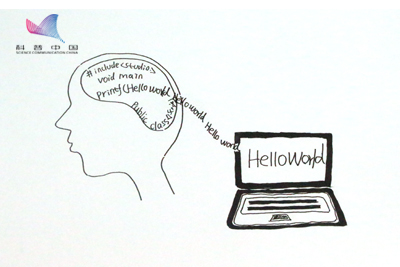 科普中国
SCIENCE COMMUNICATION CHINA
#include<studio>
void main
printf(Hello world Hello world Hello world
Public class
HelloWorld